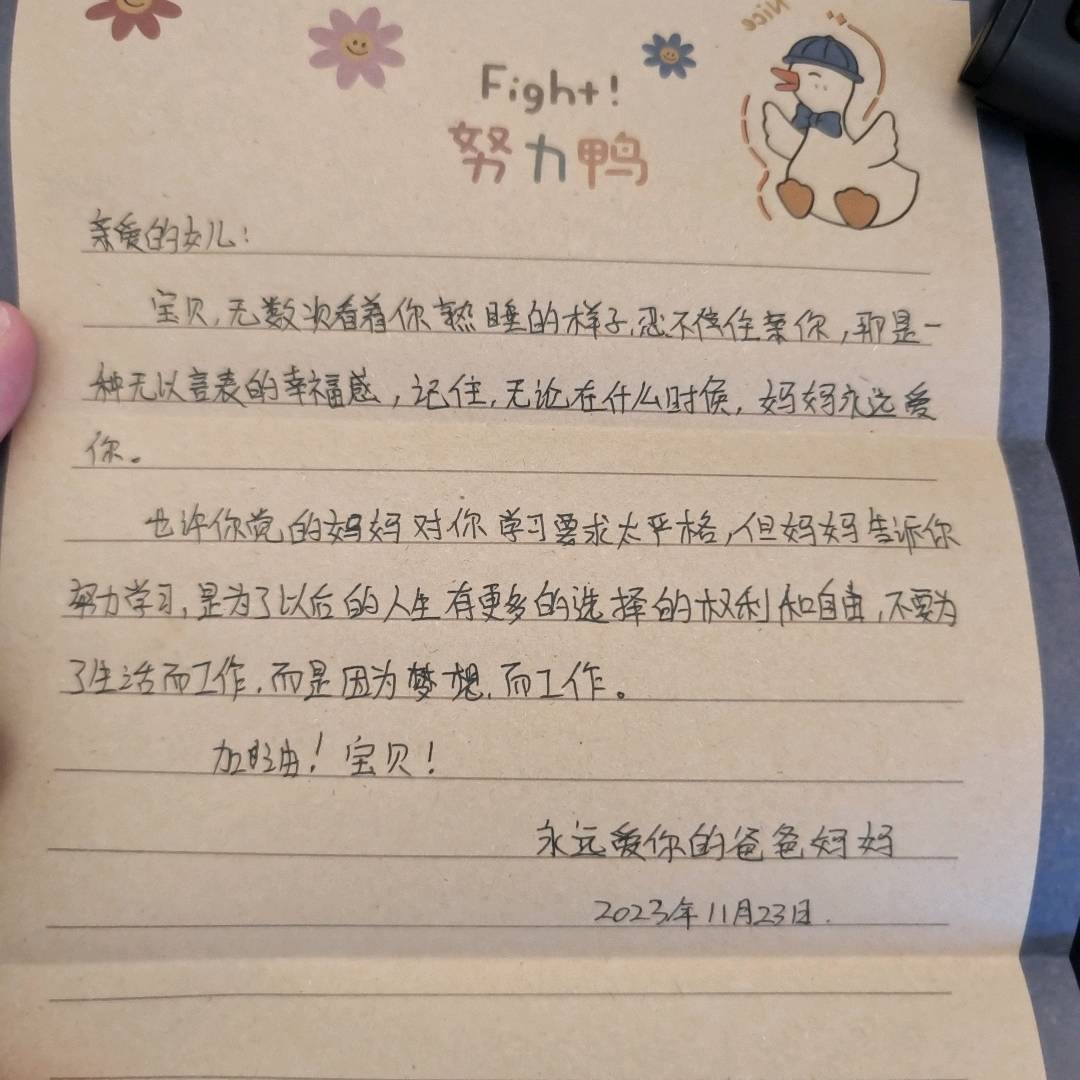 Nice
Fight!
努力鸭
亲爱的女儿:
宝贝,无数次看着你熟睡的样子,忍不住住亲你,那是一
种无以言表的幸福感,记住,无论在什么时候,妈妈永远爱
你。
也许你觉的妈妈对你学习要求太严格,但妈妈告诉你
努力学习,是为了以后的人生有更多的选择的权利和自由,不要为
了生活而工作,而是因为梦想,而工作。
加油!宝贝!
永远爱你的爸爸妈妈
2023年11月23日.